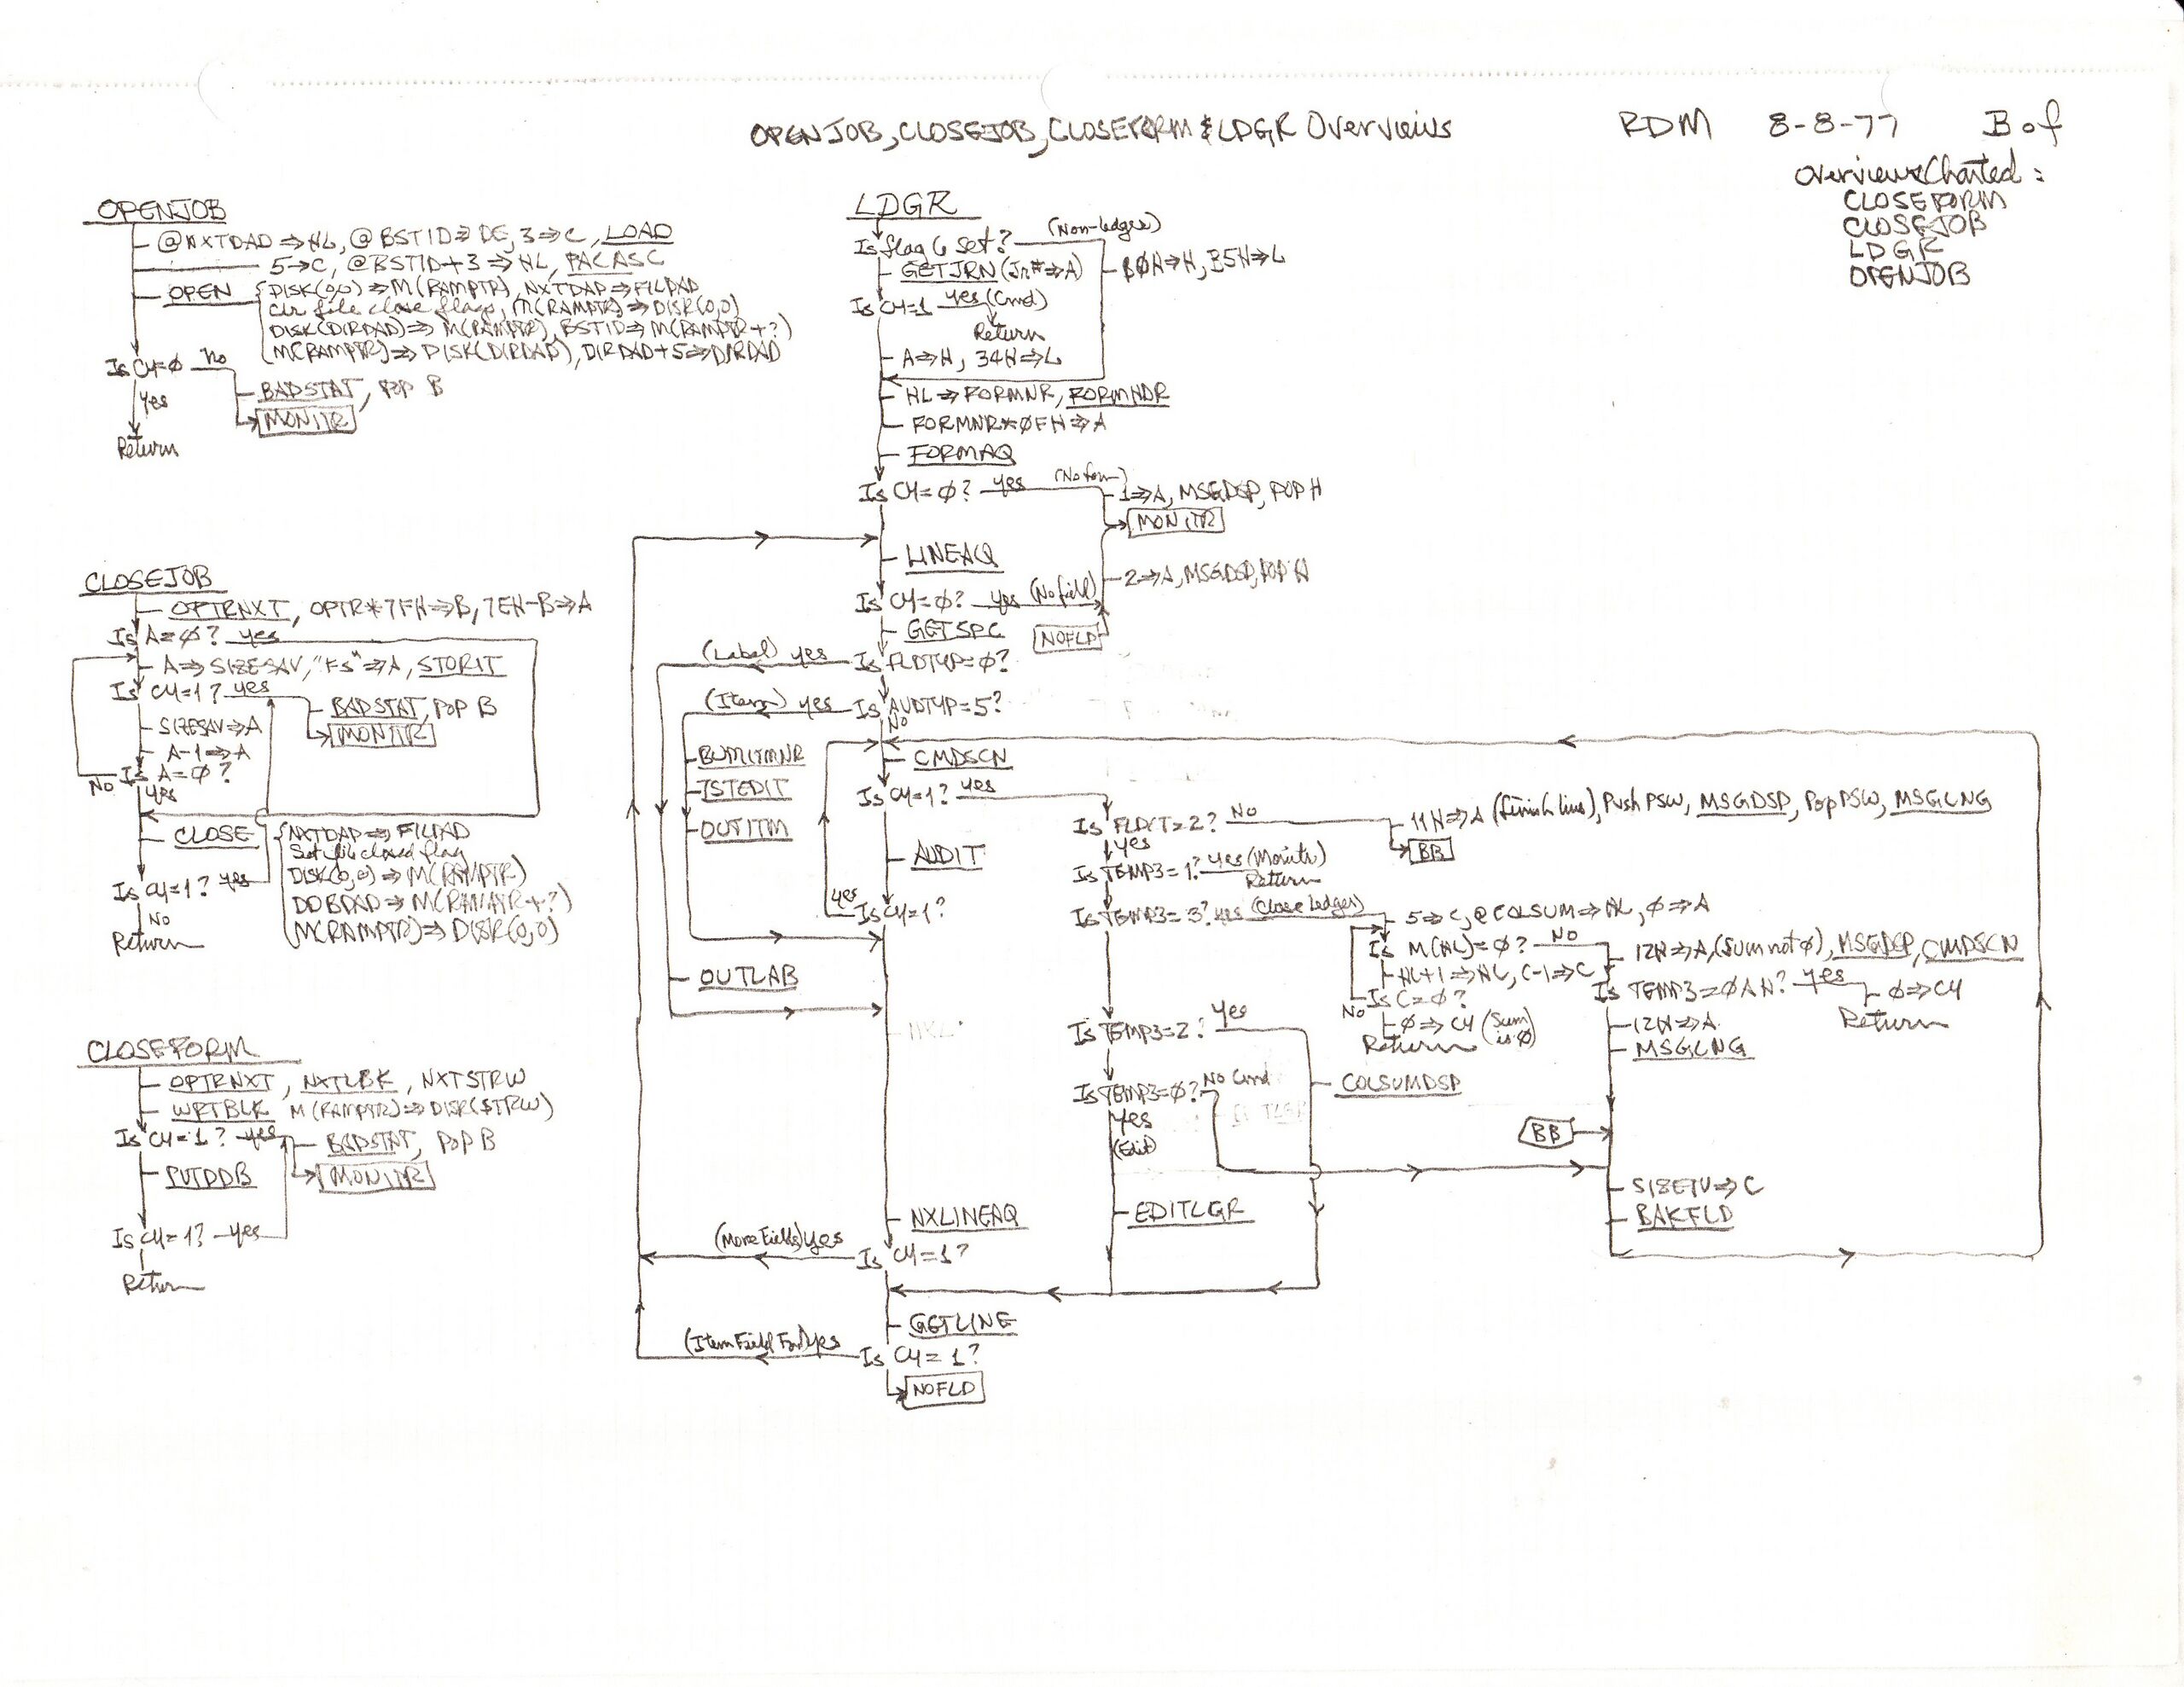 OPENJOB, CLOSEJOB, CLOSEFORM & LDGR Overviews
RDM 8-8-77 B of
Overviews Charted:
CLOSEFORM
CLOSEJOB
LDGR
OPENJOB
OPENJOB
@NXTDAD⇒HL, @BSTID⇒DE, 3⇒C, LOAD
5→C, @BSTID+3⇒HL, PACASC
OPEN
DISK(0,0)⇒M(RAMPTR), NXTDAD⇒FILDAD
clr file close flags, M(RAMPTR)⇒DISK(0,0)
DISK(DIRDAD)⇒M(RAMPTR), BSTID⇒M(RAMPTR+?)
M(RAMPTR)⇒DISK(DIRDAD), DIRDAD+5⇒DIRDAD
Is CY=Ø no
BADSTAT, POP B
MONITR
yes
Return
CLOSEJOB
OPTRNXT, OPTR*7FH⇒B, 7EH-B⇒A
Is A=Ø? yes
A⇒SIZESAV, "Fs"⇒A, STORIT
Is CY=1? yes
BADSTAT, POP B
MONITR
SIZESAV⇒A
A-1⇒A
No Is A=Ø?
yes
CLOSE
NXTDAD⇒FILDAD
Set file closed flag
DISK(0,0)⇒M(RAMPTR)
DDBDAD⇒M(RAMPTR+?)
M(RAMPTR)⇒DISK(0,0)
Is CY=1? yes
No
Return
CLOSEFORM
OPTRNXT, NXTLBK, NXTSTRW
WRTBLK M(RAMPTR)⇒DISK(STRW)
Is CY=1? yes
BADSTAT, POP B
MONITR
PUTDDB
Is CY=1? yes
Return
LDGR
Is flag 6 set? (Non-ledger)
GETJRN (Jr#⇒A)
BØH⇒H, B5H⇒L
Is CY=1 yes (Cmd)
Return
A⇒H, 34H⇒L
HL⇒FORMNR, FORMHDR
FORMNR*ØFH⇒A
FORMAQ
Is CY=Ø? yes (No form)
1⇒A, MSGDSP, POP H
MONITR
LINEAQ
2⇒A, MSGDSP, POP H
Is CY=Ø? yes (No field)
GETSPC
NOFLD
(Label) yes Is FLDTYP=Ø?
(Item) yes Is AUDTYP=5?
No
BUMITMNR
ISTEDIT
OUTITM
CMDSCN
Is CY=1? yes
AUDIT
yes
Is CY=1?
OUTLAB
Is FLDCT>2? No
11H⇒A (finish line), Push PSW, MSGDSP, Pop PSW, MSGLNG
BB
yes
Is TEMP3=1? yes (Monitr)
Return
Is TEMP3=3? yes (Close Ledger)
5⇒C, @COLSUM⇒HL, Ø⇒A
Is M(HL)=Ø? No
12H⇒A, (Sum not Ø), MSGDSP, CMDSCN
HL+1⇒HL, C-1⇒C
Is C=Ø?
No
Ø⇒CY (Sum is Ø)
Return
Is TEMP3=ØAH? yes
Ø⇒CY
Return
12H⇒A
MSGLNG
Is TEMP3=2? yes
COLSUMDSP
Is TEMP3=Ø? No Cmd
yes
(Edit)
BB
EDITLGR
SIZEIV⇒C
BAKFLD
NXLINEAQ
(More Fields) yes Is CY=1?
GETLINE
(Item Field Fnd) yes Is CY=1?
NOFLD